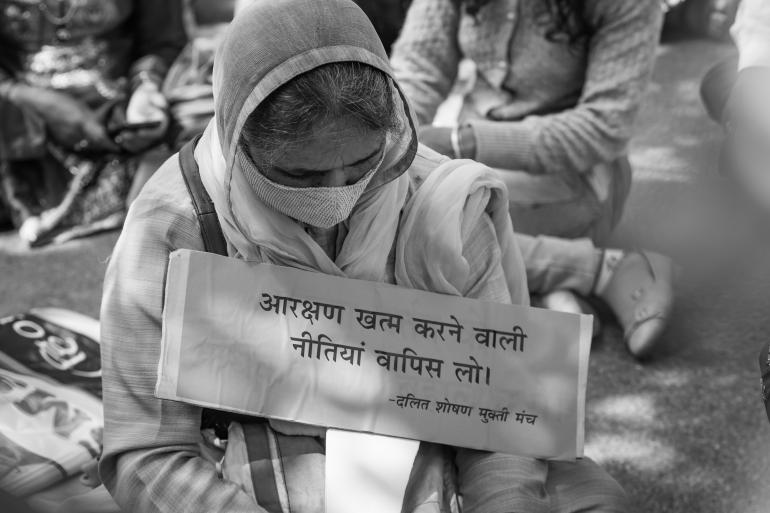 आरक्षण खत्म करने वाली
नीतियां वापिस लो।
-दलित शोषण मुक्ती मंच